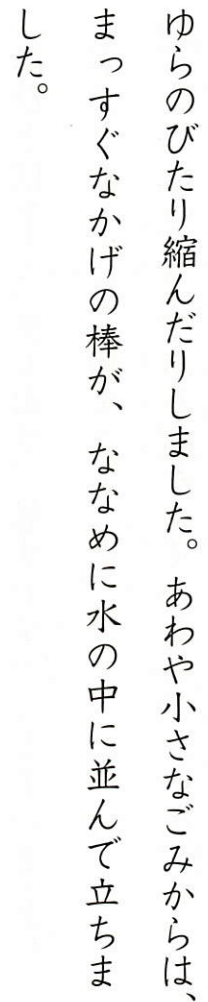 ゆらのびたり縮んだりしました。あわや小さなごみからは、
まっすぐなかげの棒が、ななめに水の中に並んで立ちま
した。